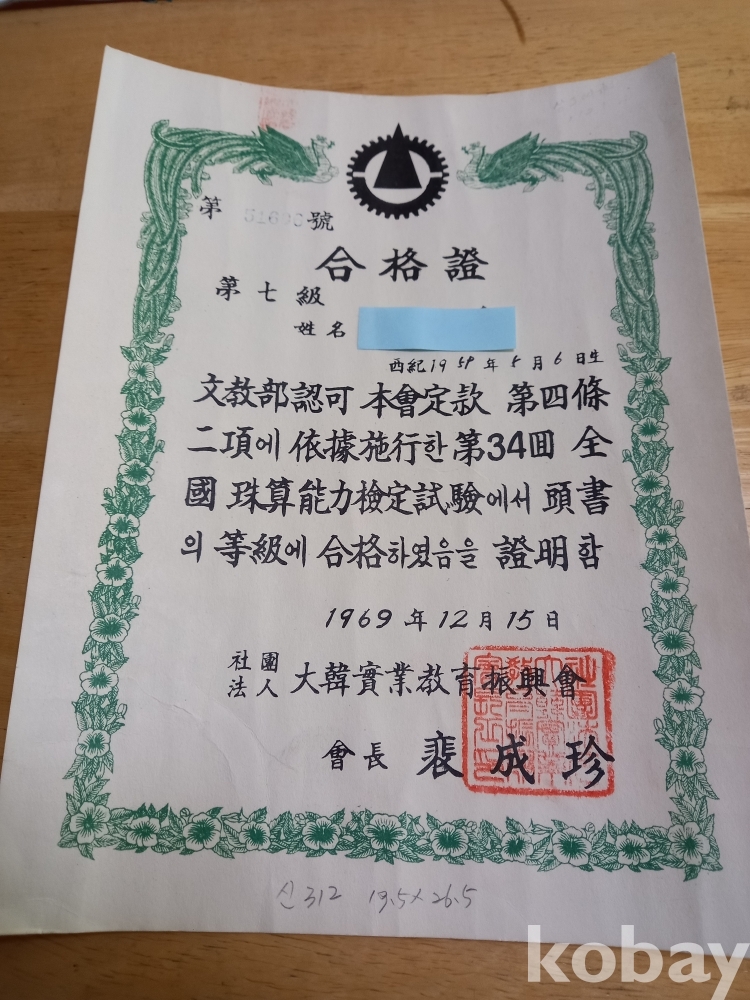 第 號
合格證
第七級
姓名
西紀19 年 5月6日生
文敎部認可 本會定款 第四條
二項에 依據施行한 第34回 全
國 珠算能力檢定試驗에서 頭書
의 等級에 合格하였음을 證明함
1969年12月15日
社團法人 大韓實業敎育振興會
會長 裵成珍
신312 19.5x26.5
kobay